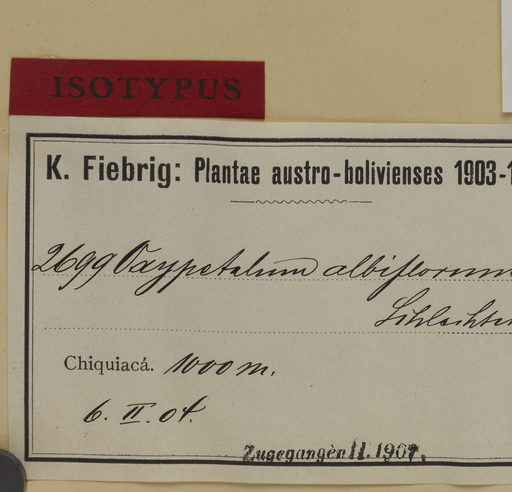 ISOTYPUS
K. Fiebrig: Plantae austro-bolivienses 1903-1
2699 Oxypetalum albiflorum
Schlechter
Chiquiacá. 1000 m.
6. II. 04.
Zugegangen II. 1907.